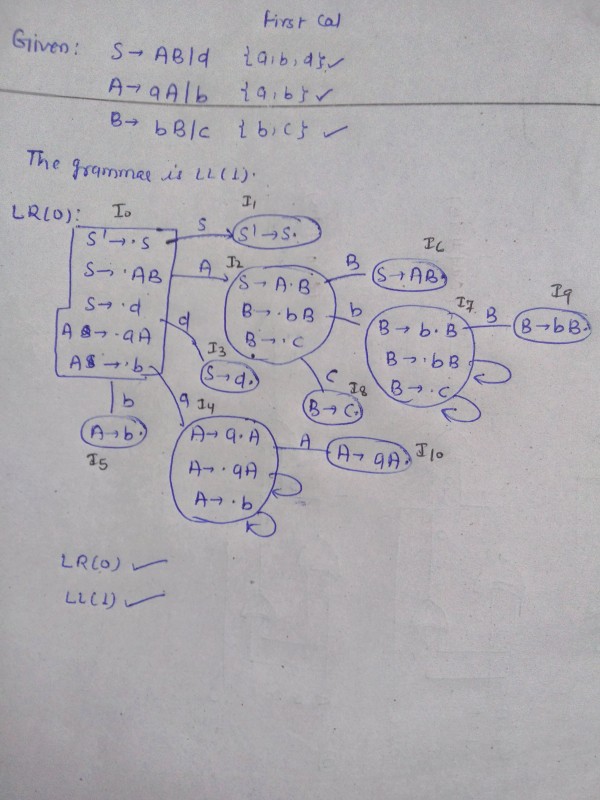 First Cal
Given: S → AB/d {a,b,d} ✓
A → aA/b {a,b} ✓
B → bB/c {b,c} ✓
The grammar is LL(1).
LR(0): I0
S' → .S
S → .AB
S → .d
A → .aA
A → .b
S
I1
S' → S.
A
I2
S → A.B
B → .bB
B → .c
B
I6
S → AB.
d
I3
S → d.
b
I7
B → b.B
B → .bB
B → .c
B
I9
B → bB.
c
I8
B → c.
b
A → b.
I5
a
I4
A → a.A
A → .aA
A → .b
A
A → aA.
I10
LR(0) ✓
LL(1) ✓